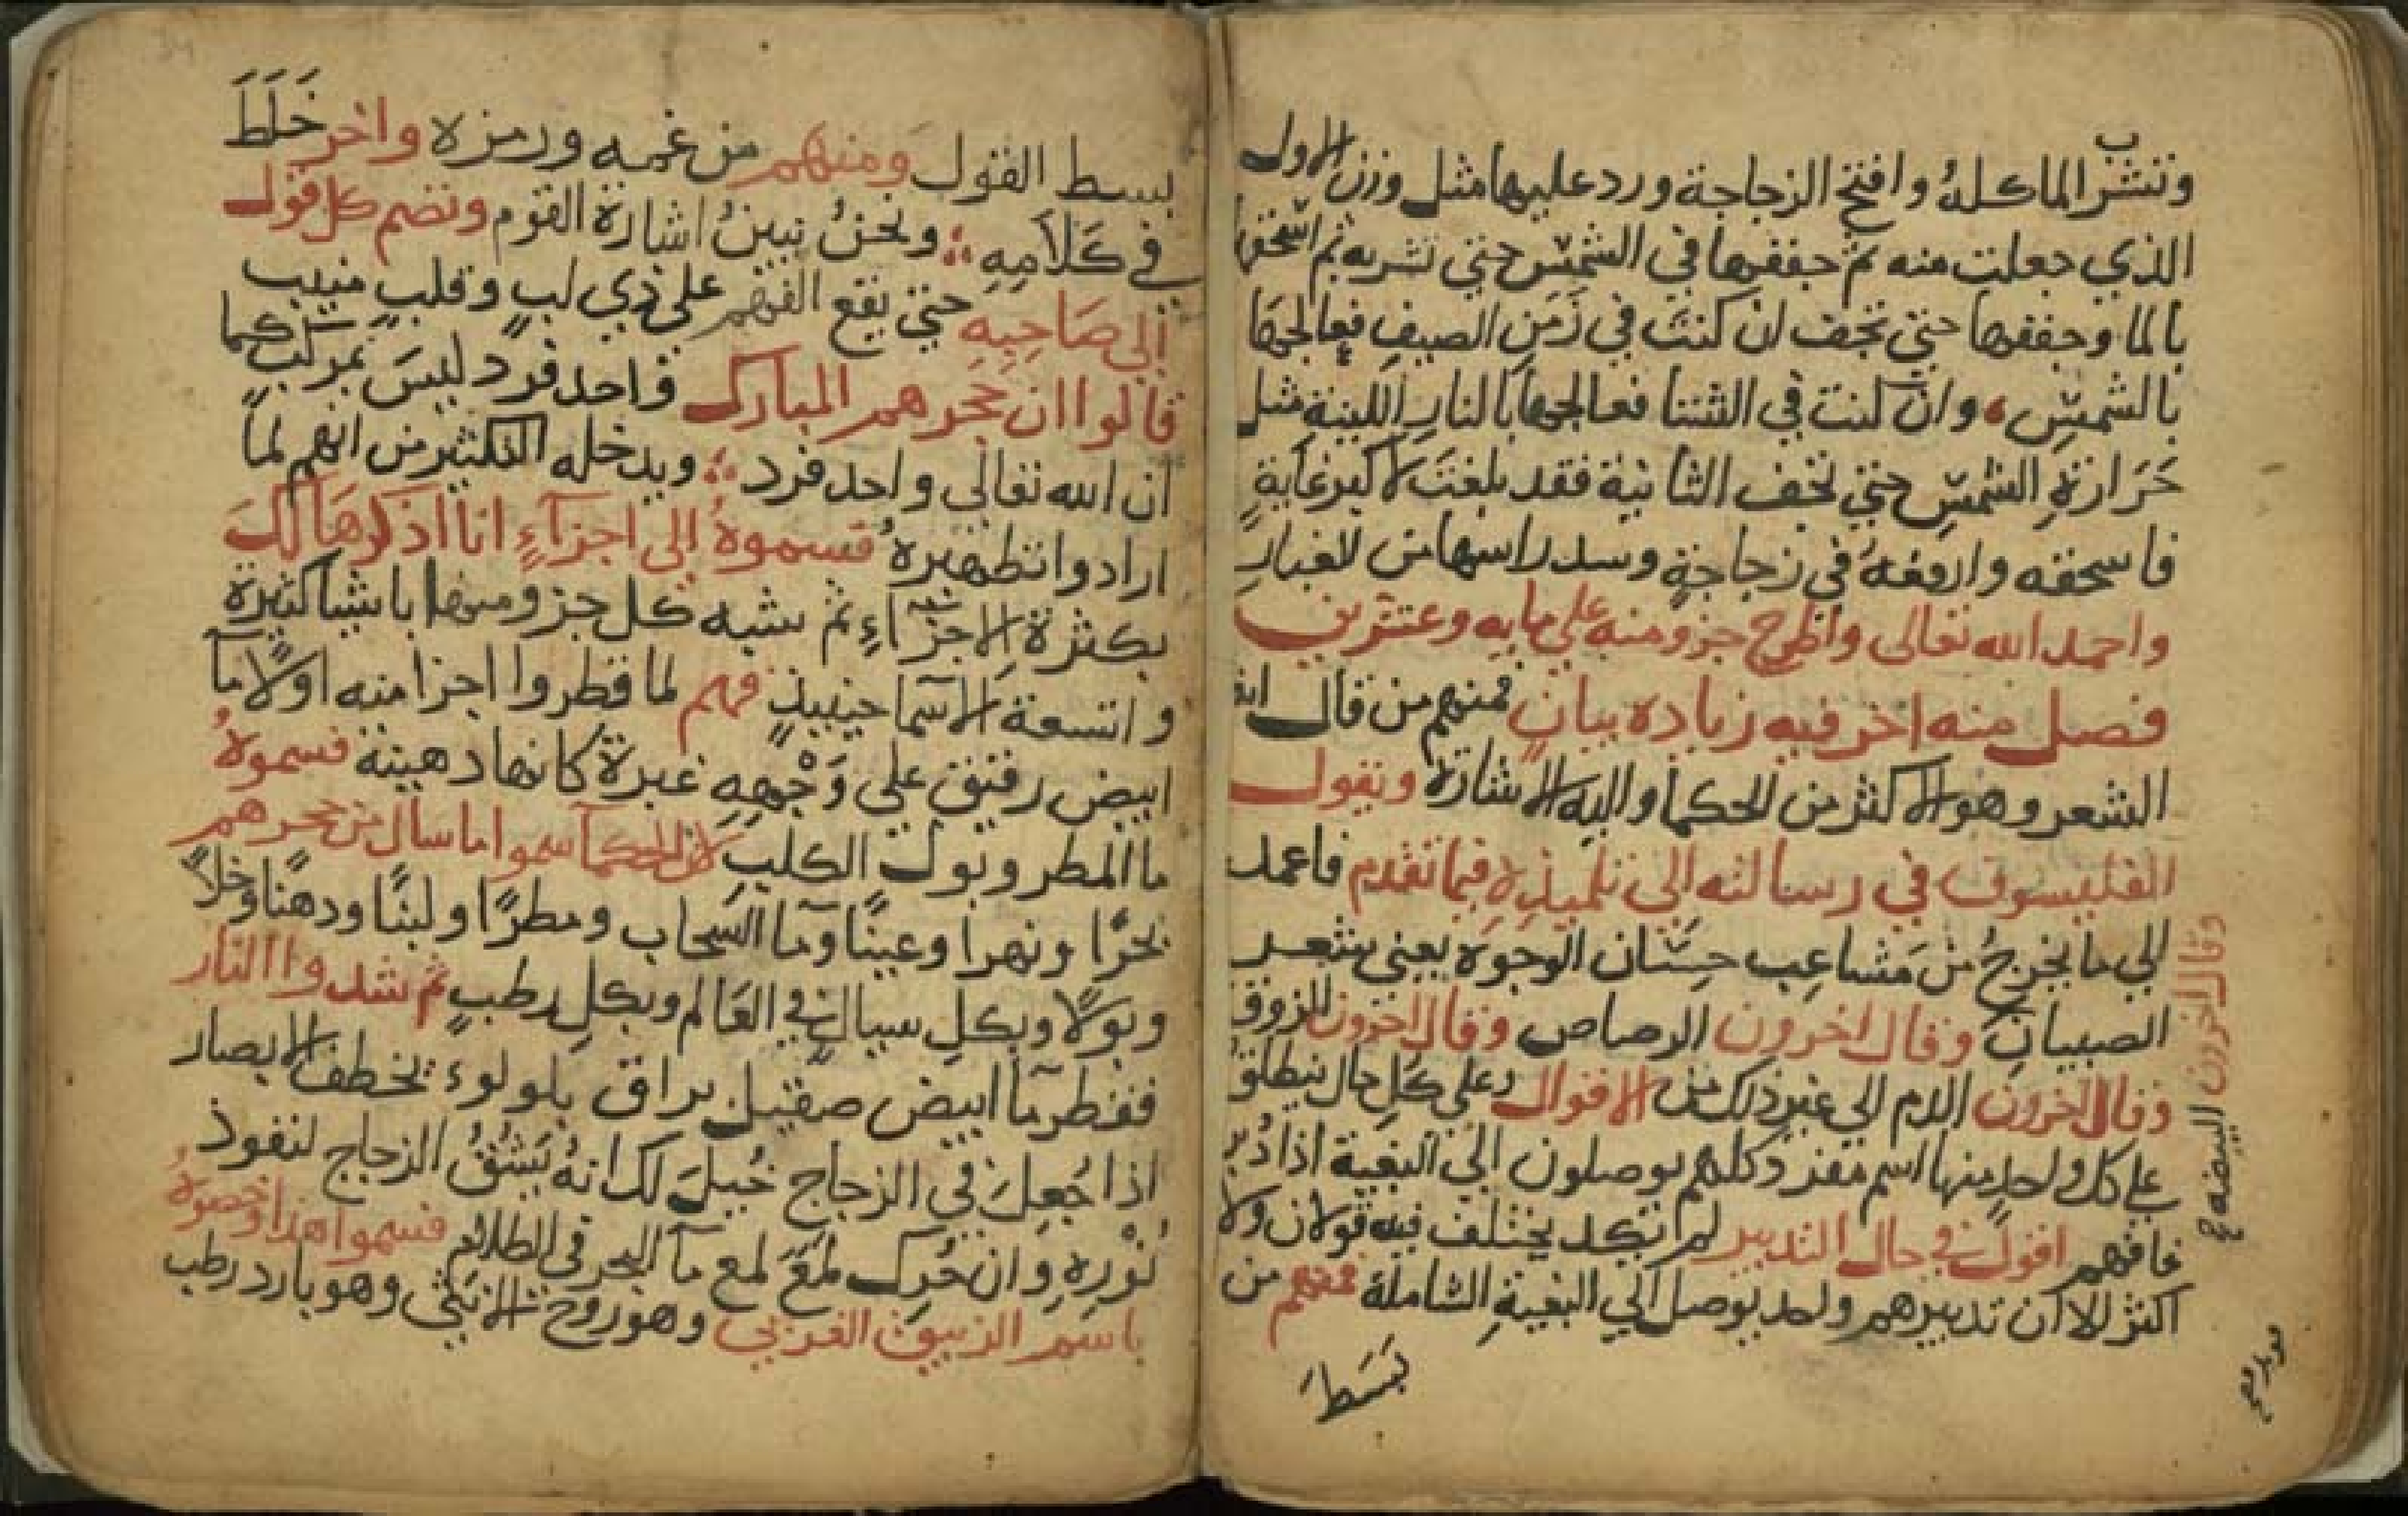 وتنشر الما كلهُ وافتح الزجاجة ورد عليها مثل وزن الاول
الذي جعلت منه ثم جففها في الشمس حتي تشربه ثم اسحقها
بالما وجففها حتي تجف ان كنتَ في زَمَنِ الصيفِ فعالجها
بالشمسِ، وان كنت في الشتا فعالجها بالنارِ اللينةِ مثل
حَرَارةِ الشمسِ حتي تجف الثانية فقد بلغتَ لاكبر غايةٍ
فاسحقه وارفعهُ في زجاجةٍ وسد راسها من الغبارِ
واحمد الله تعالى واطرح جزو منه علي مايه وعشرين
فصل منه اخر فيه زياده بيانٍ فمنهم من قال انه
الشعر وهو الاكثر من الحكما واليه الاشارة وبقول
الفليسوف في رسالته الي تلميذه فيما تقدم فاعمد
الي ما يخرجُ منَ مَشاعِبِ حسَان الوجوة يعني بشعر
الصبيانِ وقال اخرون الرصاص وقال اخرون الزوق
وقال اخرون الدم الي غير ذلك من الاقوال وعلي كل حال ينطلق
علي كل واحدٍ منها اسم مفرد وكلهم يوصلون الي البغية اذا دُبر
فافهم اقول في حال التدبير لم تكد يختلف فيه قولان ولا
اكثر الا ان تدبيرهم واحد يوصل الي البغيةِ الشاملة فمنهم من
بَسَطَ
وقال اخرون البيضه صح
بسط القول ومنهم من غمه ورمزه واخر خَلَطَ
في كَلَامِهِ ونحنُ نبينُ اشارة القوم ونضم كل قول
الي صَاحِبِهِ حتي يقع الفهم علي ذي لبٍ وقلبٍ منيب
قالوا ان حَجَرهم المبارك واحد فرد ليسَ بمركب كما
ان الله تعالي واحد فرد ويدخله التكثير من انهم لماً
ارادوا تطهيرهُ قسموهُ الي اجزآءٍ انا اذكرهَا لكَ
بكثرة الاجزآءِ ثم شبه كل جزو منها باشيا كثيرة
واتسعة الاسما حينيذٍ فهم لما قطروا اخرا منه اولًا مآ
ابيض رقيق علي وَجْهِهِ غبرة كانها دهنية فسموهُ
ما المطر وبول الكلبِ لان الحكما سموا ما سال من حجرهم
بحرًا ونهرا وعينًا ومآ السحاب ومطرًا ولبنًا ودهنًا وخلاً
وبولًا وبكلِ سيالٍ في العَالم وبكلِ رطبٍ ثم شدوا النار
فقطر مآ ابيض صقيل براق يلولوء يخطف الابصار
اذا جُعِلَ في الزجاج خُيلَ لك انهُ يَشُقُ الزجاج لنفوذ
نُوْرِهِ وان حُرِك لمعَ لمع مآ البحر في الظلام فسموا هذا وخصوهُ
باسم الزيبق الغربي وهو روح الانثي وهو بارد رطب